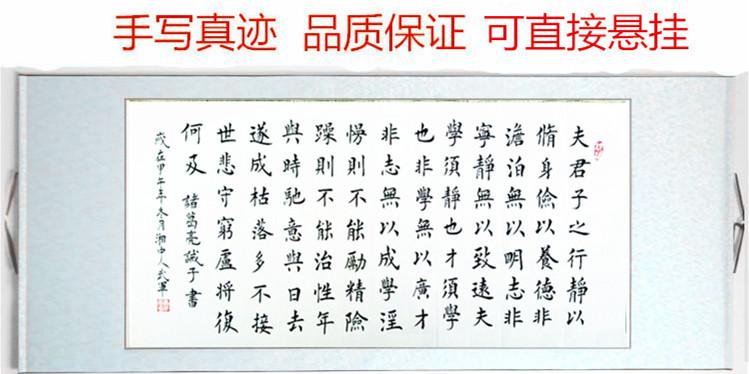 手写真迹 品质保证 可直接悬挂
夫君子之行靜以
脩身儉以養德非
澹泊無以明志非
寧靜無以致遠夫
學須靜也才須學
也非學無以廣才
非志無以成學淫
慢則不能勵精險
躁則不能治性年
與時馳意與日去
遂成枯落多不接
世悲守窮廬將復
何及 諸葛亮誡子書
歲在甲午年冬月湘中人武軍